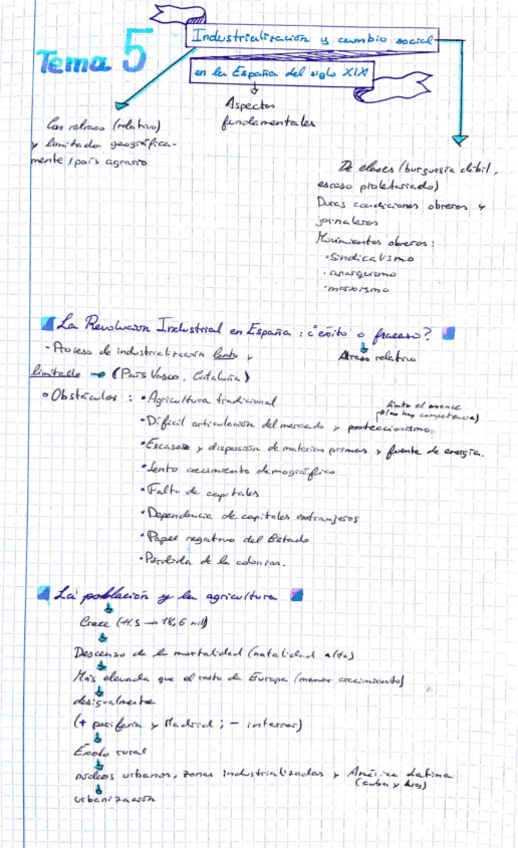 Tema 5
Industrialización y cambio social
en la España del siglo XIX
Aspectos
fundamentales
Con retraso (relativo)
y limitado geográfica-
mente / país agrario
De clases (burguesía débil,
exceso proletariado)
Duras condiciones obreros y
jornaleros
Movimientos obreros:
· Sindicalismo
· anarquismo
· marxismo
La Revolución Industrial en España: ¿éxito o fracaso?
Atraso relativo
· Proceso de industrialización lento y
limitado → (País Vasco, Cataluña)
· Obstáculos: · Agricultura tradicional
limita el avance
(No hay competencia)
· Difícil articulación del mercado y proteccionismo
· Escasez y dispersión de materias primas y fuente de energía.
· Lento crecimiento demográfico
· Falta de capitales
· Dependencia de capitales extranjeros
· Papel negativo del Estado
· Pérdida de la colonias.
La población y la agricultura
Crece (11.5 → 18,6 mill)
Descenso de la mortalidad (natalidad alta)
Más elevada que el resto de Europa (menor crecimiento)
desigualmente
(+ periferia y Madrid; - interior)
Éxodo rural
núcleos urbanos, zonas industrializadas y América Latina
(Cuba y Arg)
urbanización